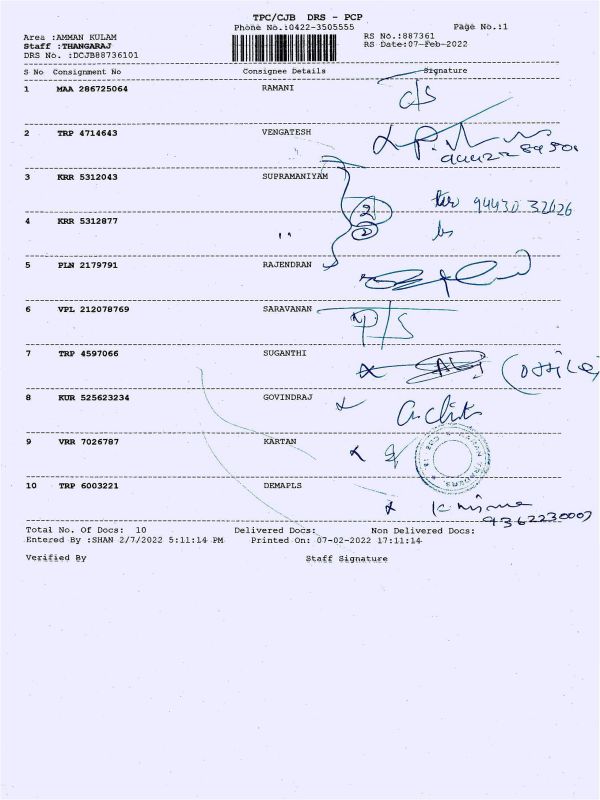 TPC/CJB DRS - PCP
Phone No.:0422-3505555
Page No.:1
Area :AMMAN KULAM
RS No.:887361
Staff :THANGARAJ
RS Date:07-Feb-2022
DRS No. :DCJB88736101
S No Consignment No Consignee Details Signature
1 MAA 286725064 RAMANI
C/S
2 TRP 4714643 VENGATESH
3 KRR 5312043 SUPRAMANIYAM
2 94430 32626
4 KRR 5312877 "
2
5 PLN 2179791 RAJENDRAN
6 VPL 212078769 SARAVANAN
P/S
7 TRP 4597066 SUGANTHI
8 KUR 525623234 GOVINDRAJ
9 VRR 7026787 KARTAN
10 TRP 6003221 DEMAPLS
Total No. Of Docs: 10 Delivered Docs: Non Delivered Docs:
Entered By :SHAN 2/7/2022 5:11:14 PM Printed On: 07-02-2022 17:11:14
Verified By Staff Signature